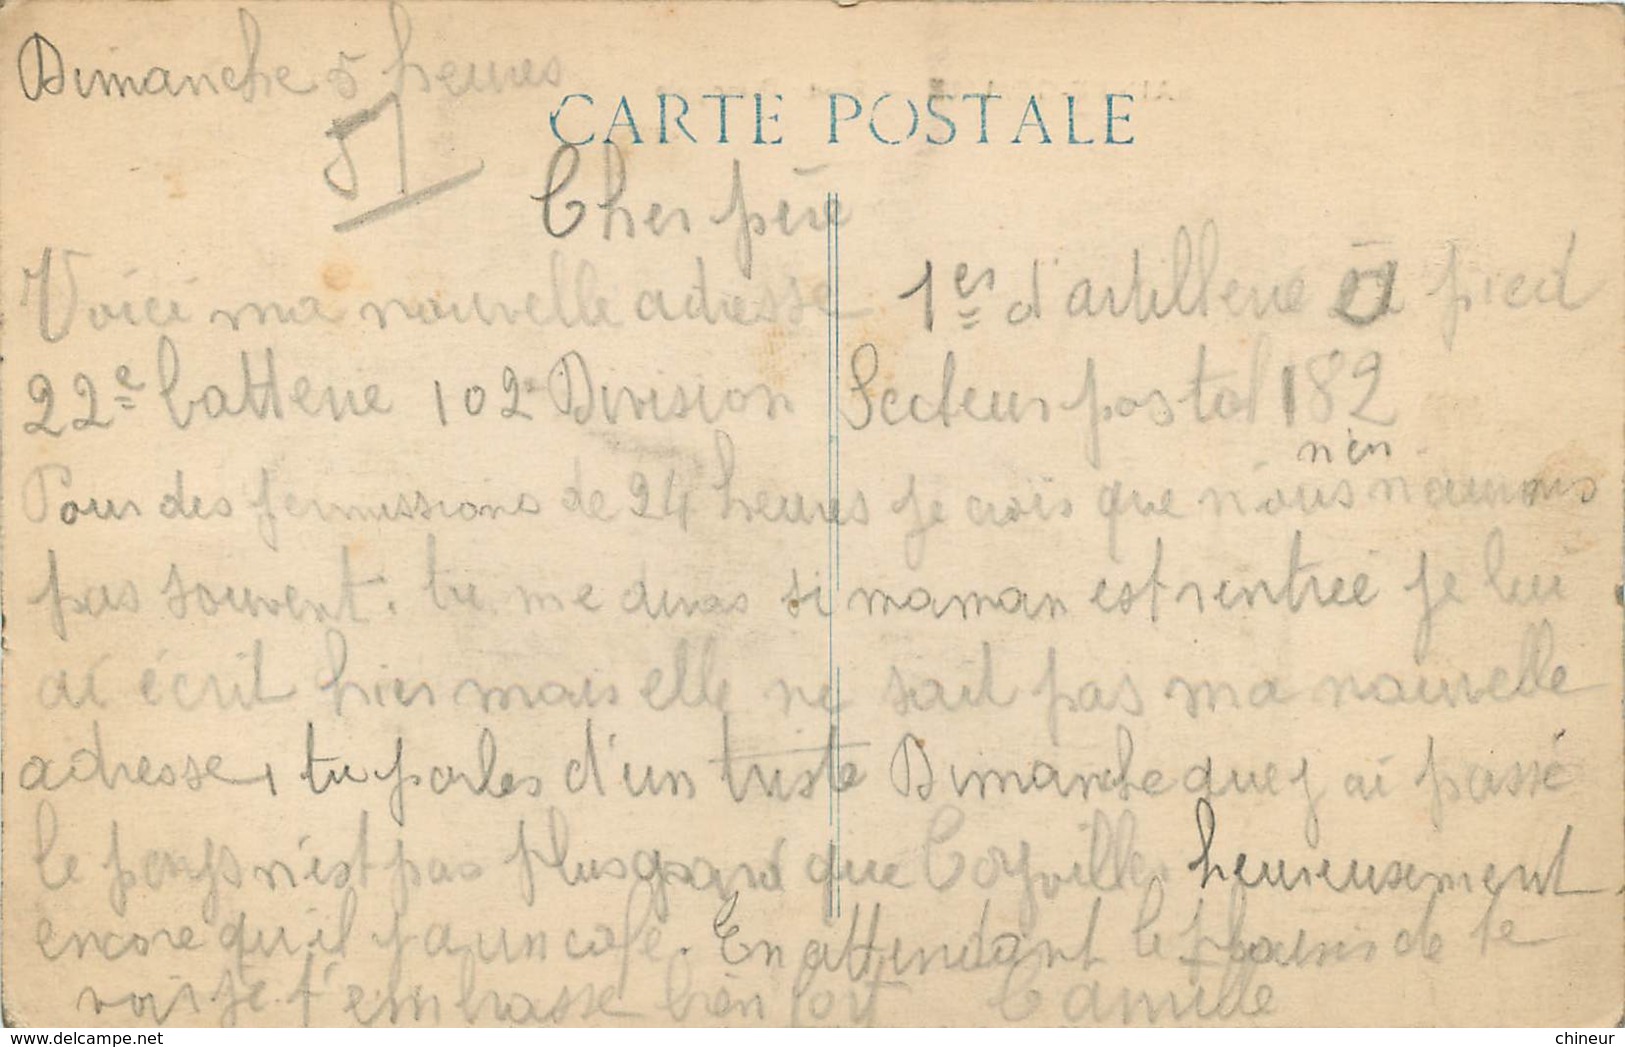 Dimanche 5 heures
CARTE POSTALE
51
Cher père
Voici ma nouvelle adresse 1er d'artillerie à pied
22e batterie 102e Division Secteur postal 182
n'en
Pour des permissions de 24 heures je crois que nous n'aurons
pas souvent. tu me diras si maman est rentrée je lui
ai écrit hier mais elle ne sait pas ma nouvelle
adresse, tu parles d'un triste Dimanche que j'ai passé
le pays n'est pas plus grand que Coyville heureusement
encore qu'il y a un café. En attendant le plaisir de te
voir je t'embrasse bien fort Camille
www.delcampe.net
chineur